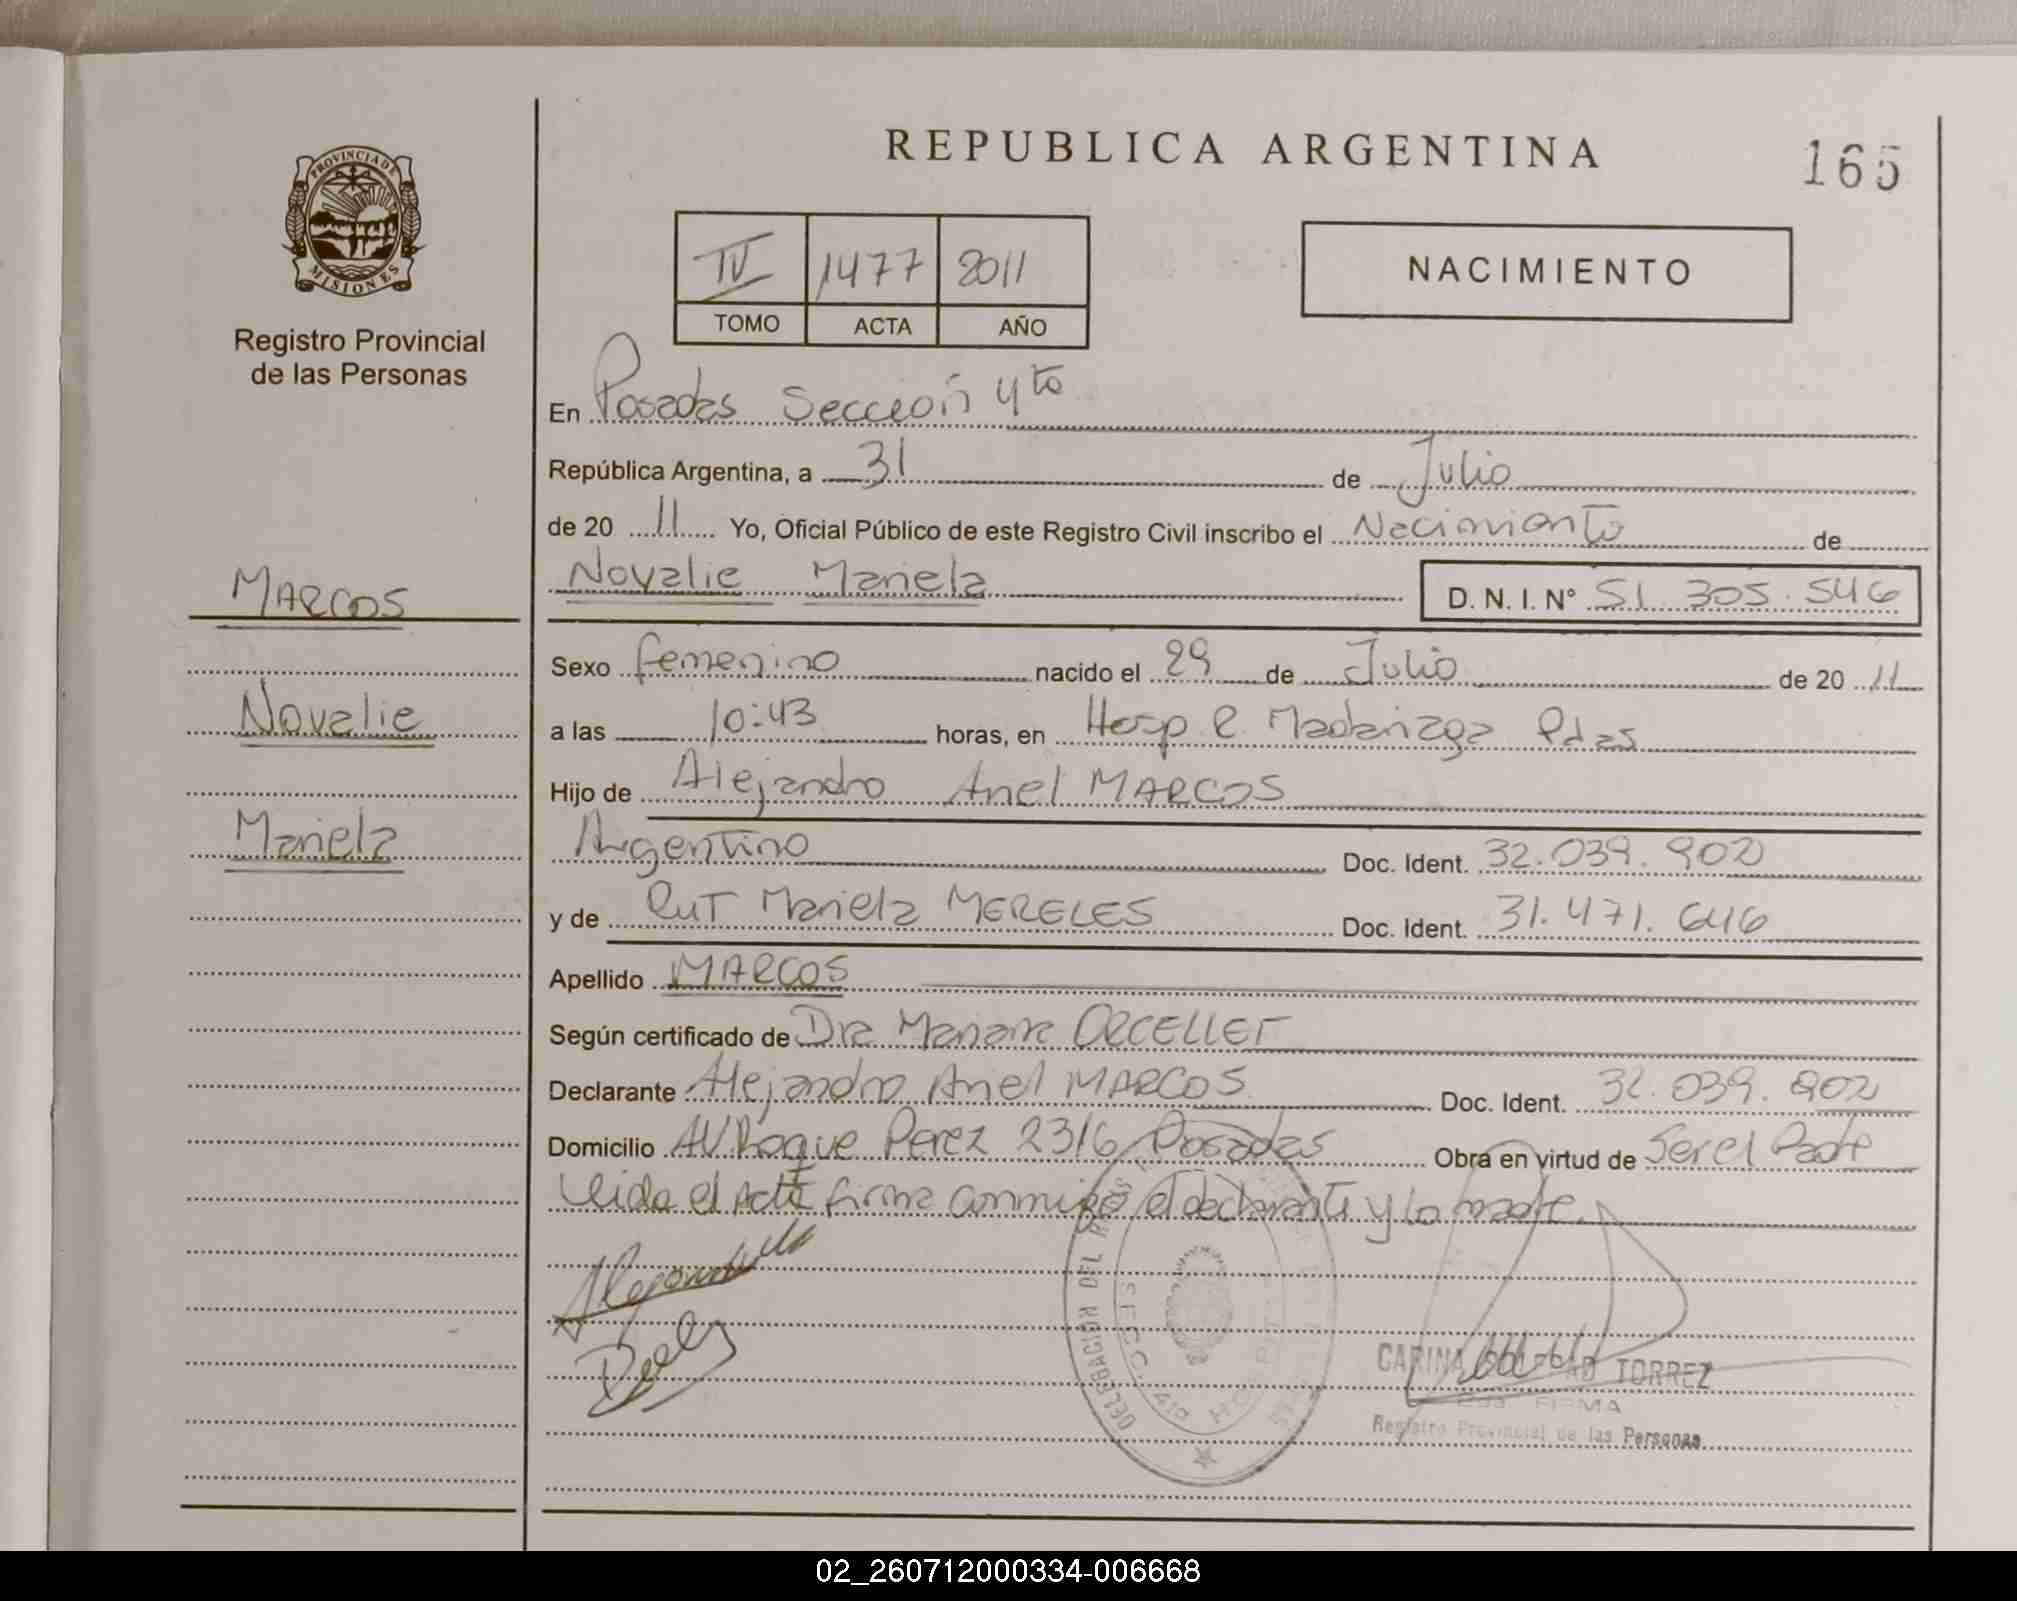 REPUBLICA ARGENTINA
165
PROVINCIA DE
MISIONES
Registro Provincial
de las Personas
IV 1477 2011
TOMO ACTA AÑO
NACIMIENTO
En Posadas Sección 4ta
República Argentina, a 31 de Julio
de 2011 Yo, Oficial Público de este Registro Civil inscribo el Nacimiento de
MARCOS
Novalie Mariela D. N. I. N° 51.305.546
Sexo femenino nacido el 29 de Julio de 2011
Novalie
a las 10:43 horas, en Hosp R. Madariaga Pdas
Hijo de Alejandro Ariel MARCOS
Mariela
Argentino Doc. Ident. 32.039.902
y de RuT Mariela MERELES Doc. Ident. 31.471.646
Apellido MARCOS
Según certificado de Dra Mariana ORCELLET
Declarante Alejandro Ariel MARCOS Doc. Ident. 32.039.902
Domicilio AV Roque Perez 2316 Posadas Obra en virtud de Ser el Padre
Leida el Acta firma conmigo el declarante y la madre.
DELEGACION DEL
SECC. 4ta
CARINA SOLEDAD TORREZ
FIRMA
Registro Provincial de las Personas
02_260712000334-006668